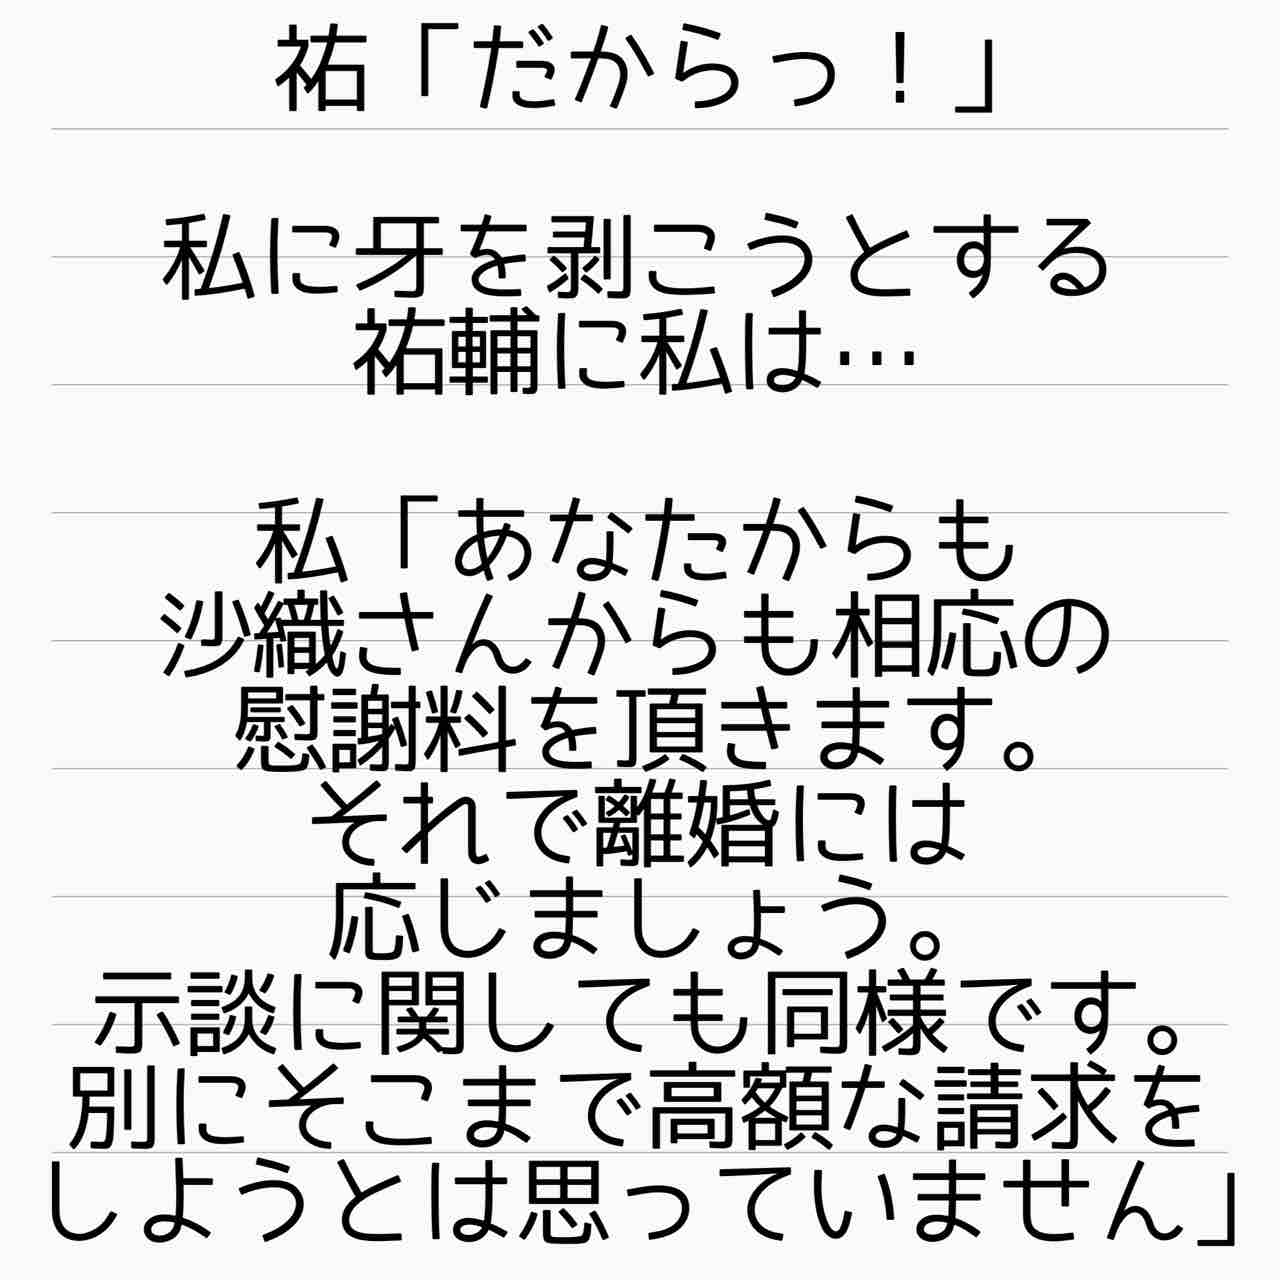 祐「だからっ！」
私に牙を剥こうとする
祐輔に私は…
私「あなたからも
沙織さんからも相応の
慰謝料を頂きます。
それで離婚には
応じましょう。
示談に関しても同様です。
別にそこまで高額な請求を
しようとは思っていません」